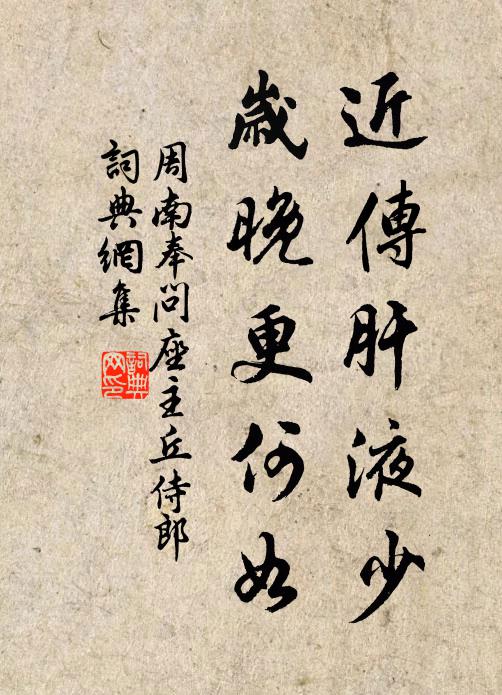 近傳肝液少
歲晚更何如
周南奉問座主丘侍郎
詞典網集
詞典網印